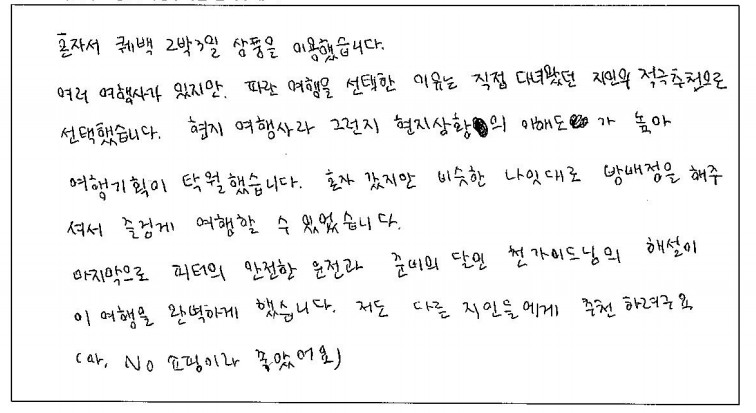 혼자서 퀘백 2박3일 상품을 이용했습니다.
여러 여행사가 있지만, 파란 여행을 선택한 이유는 직접 다녀왔던 지인의 적극추천으로
선택했습니다. 현지 여행사라 그런지 현지상황의 이해도가 높아
여행기획이 탁월했습니다. 혼자 갔지만 비슷한 나잇대로 방배정을 해주
셔서 즐겁게 여행할 수 있었습니다.
마지막으로 피터의 안전한 운전과 준비의 달인 천가이드님의 해설이
이 여행을 완벽하게 했습니다. 저도 다른 지인들에게 추천 하려구요
(아, No 쇼핑이라 좋았어요)